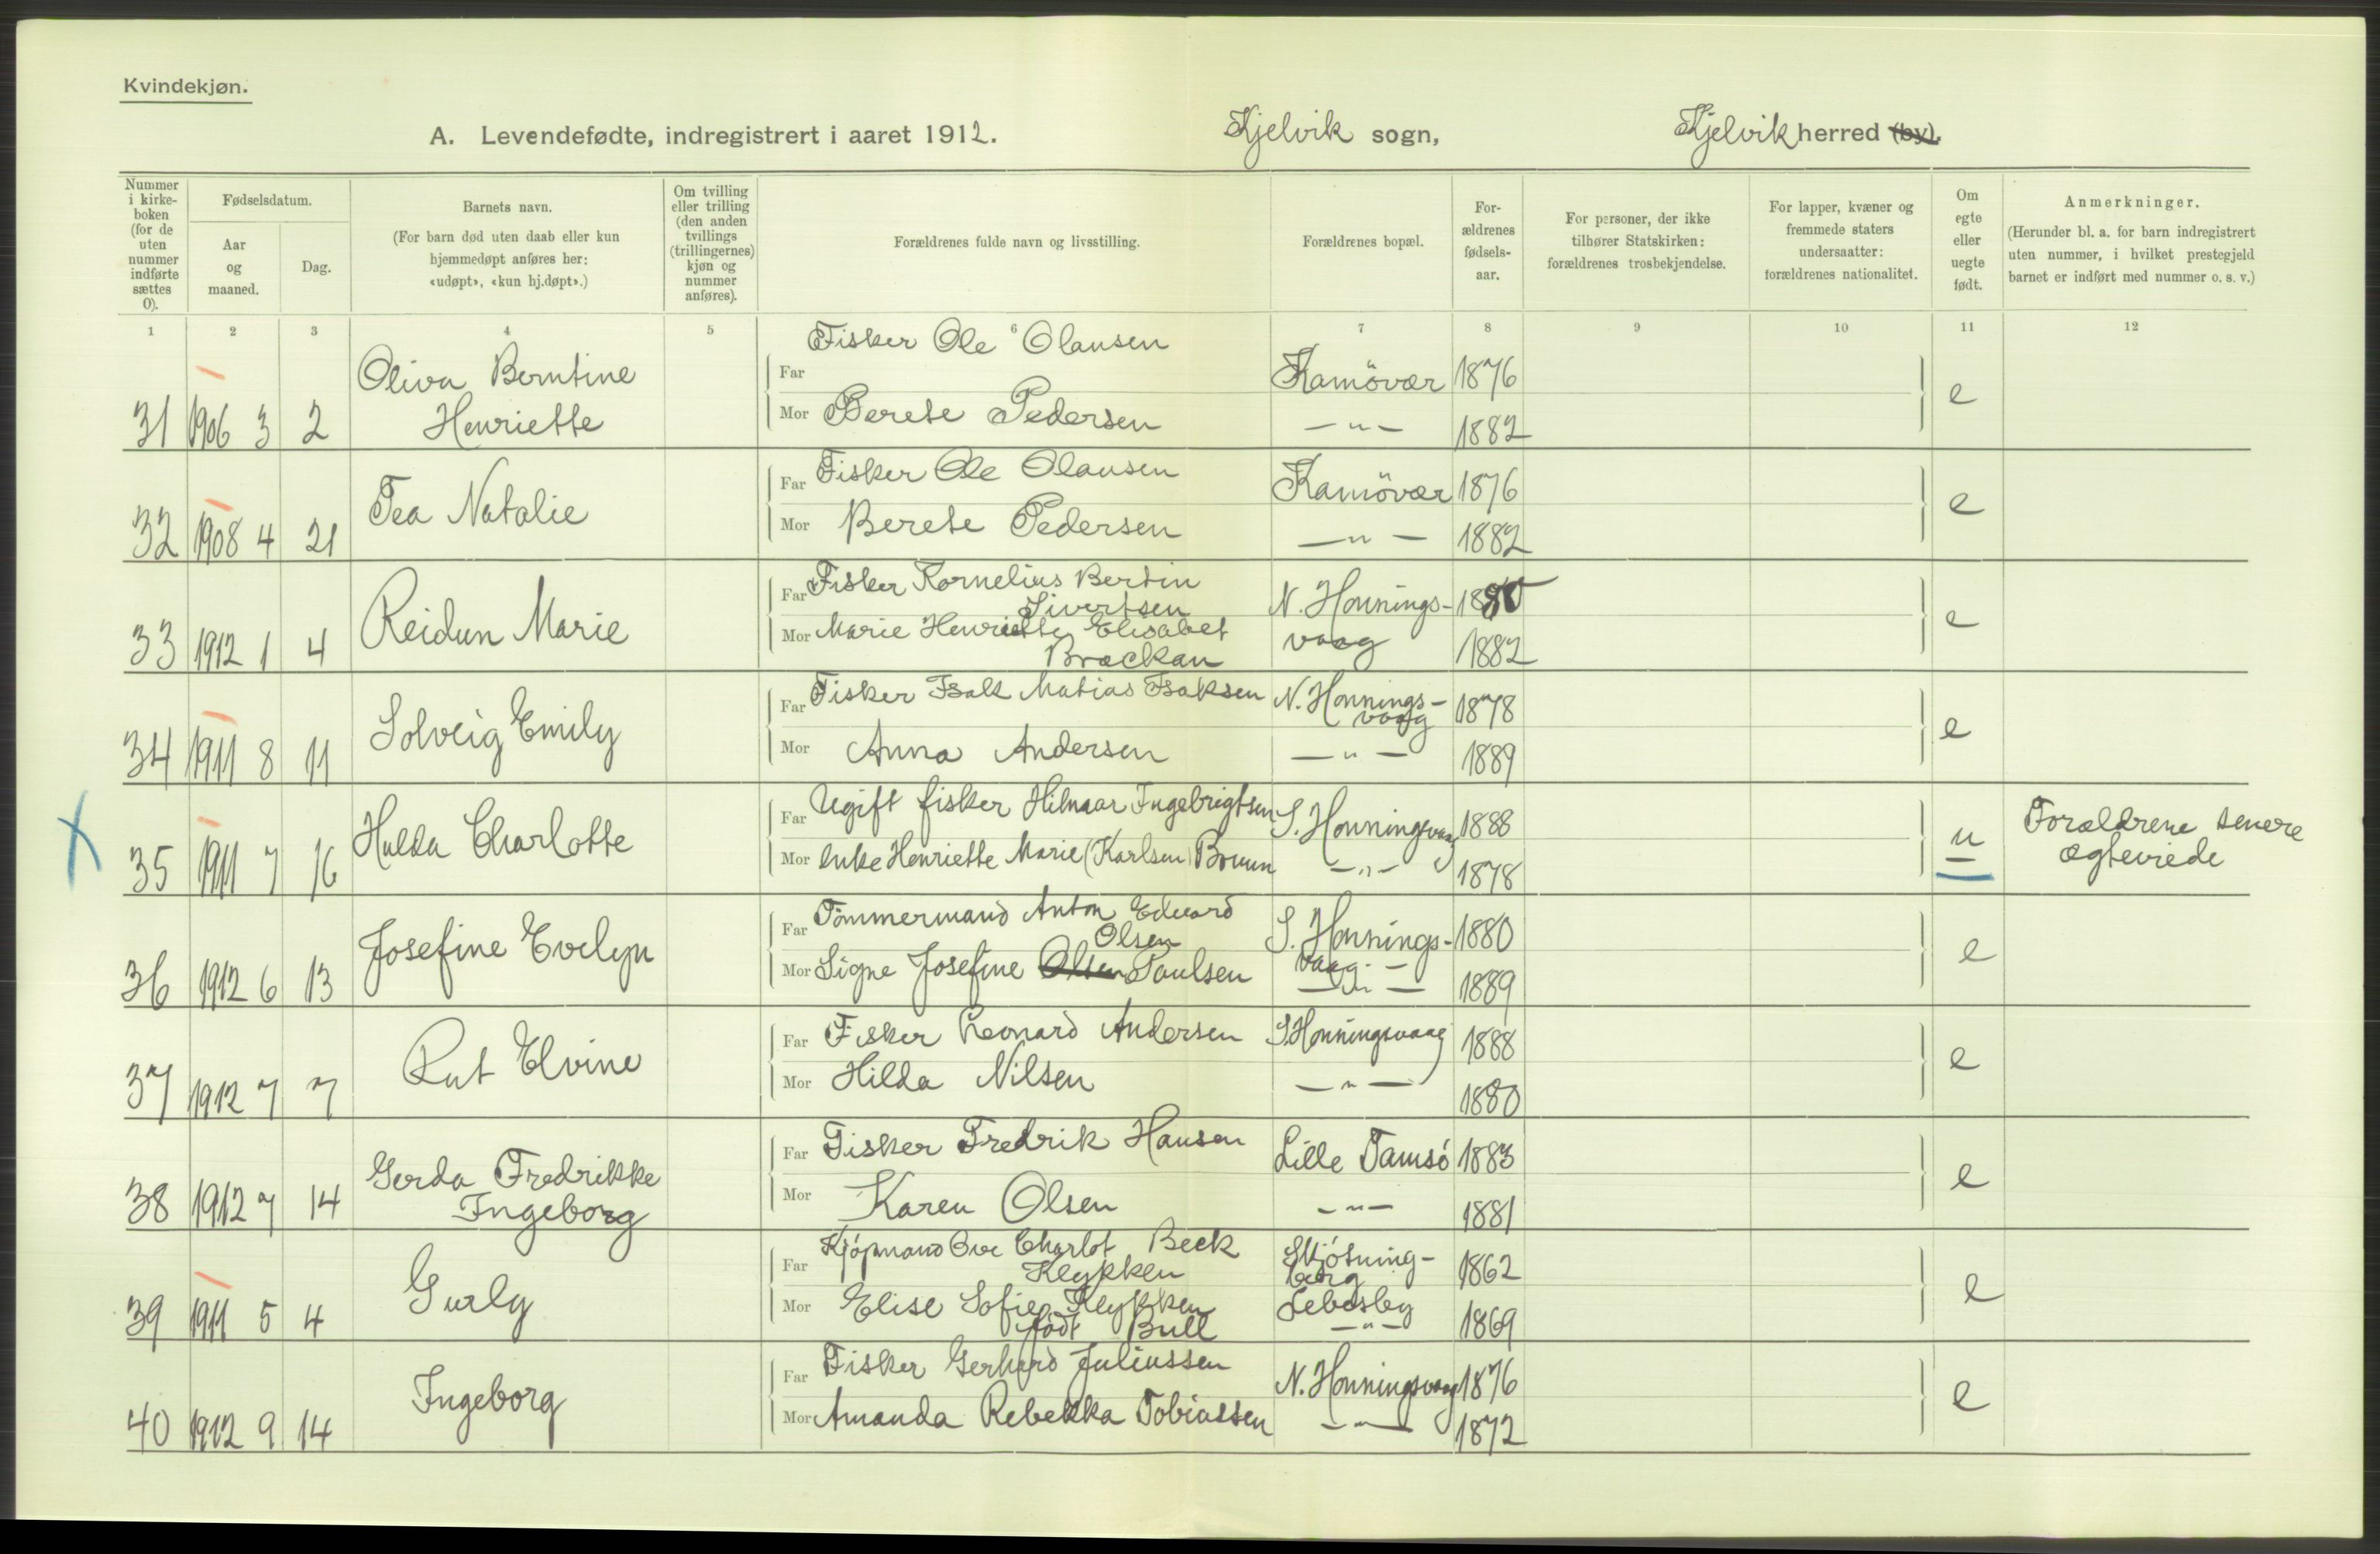 Kvindekjøn.
A. Levendefødte, indregistrert i aaret 1912. Kjelvik sogn, Kjelvik herred (by).
Nummer i kirke- boken (for de uten nummer indførte sættes 0).
Fødselsdatum.
Aar og maaned.
Dag.
Barnets navn.
(For barn død uten daab eller kun hjemmedøpt anføres her: «udøpt», «kun hj.døpt».)
Om tvilling eller trilling (den anden tvillings (trillingernes) kjøn og nummer anføres).
Forældrenes fulde navn og livsstilling.
Forældrenes bopæl.
For- ældrenes fødsels- aar.
For personer, der ikke tilhører Statskirken: forældrenes trosbekjendelse.
For lapper, kvæner og fremmede staters undersaatter: forældrenes nationalitet.
Om egte eller uegte født.
Anmerkninger.
(Herunder bl. a. for barn indregistrert uten nummer, i hvilket prestegjeld barnet er indført med nummer o. s. v.)
1 2 3 4 5 6 7 8 9 10 11 12
31 1906 3 2 Oliva Berntine Henriette
Far Fisker Ole Olausen Kamövær 1876 e
Mor Berete Pedersen —"— 1882
32 1908 4 21 Tea Natalie
Far Fisker Ole Olausen Kamövær 1876 e
Mor Berete Pedersen —"— 1882
33 1912 1 4 Reidun Marie
Far Fisker Kornelius Bertin Sivertsen N. Honnings- 1880 e
Mor Marie Henriette Elisabet Brackan vaag 1882
34 1911 8 11 Solveig Emily
Far Fisker Isak Matias Isaksen N. Honnings- vaag 1878 e
Mor Anna Andersen —"— 1889
35 1911 7 16 Hulda Charlotte
Far Ugift fisker Hilmar Ingebrigtsen S. Honningsvaag 1888 u Forældrene senere
Mor Enke Henriette Marie (Karlsen) Bruun —"— 1878 ægteviede
36 1912 6 13 Josefine Evelyn
Far Tömmermand Anton Edvard Olsen S. Honnings- vaag. 1880 e
Mor Signe Josefine Olsen Paulsen —"— 1889
37 1912 7 7 Rut Elvine
Far Fisker Leonard Andersen S. Honningsvaag 1888 e
Mor Hilda Nilsen —"— 1880
38 1912 7 14 Gerda Fredrikke Ingeborg
Far Fisker Fredrik Hansen Lille Tamsö 1883 e
Mor Karen Olsen —"— 1881
39 1911 5 4 Gurly
Far Kjöpmand Ove Charlot Beck Klykken Skjötning- berg 1862 e
Mor Elise Sofie Klykken födt Bull Lebesby —"— 1869
40 1912 9 14 Ingeborg
Far Fisker Gerhard Juliussen N. Honningsvaag 1876 e
Mor Amanda Rebekka Tobiassen —"— 1872